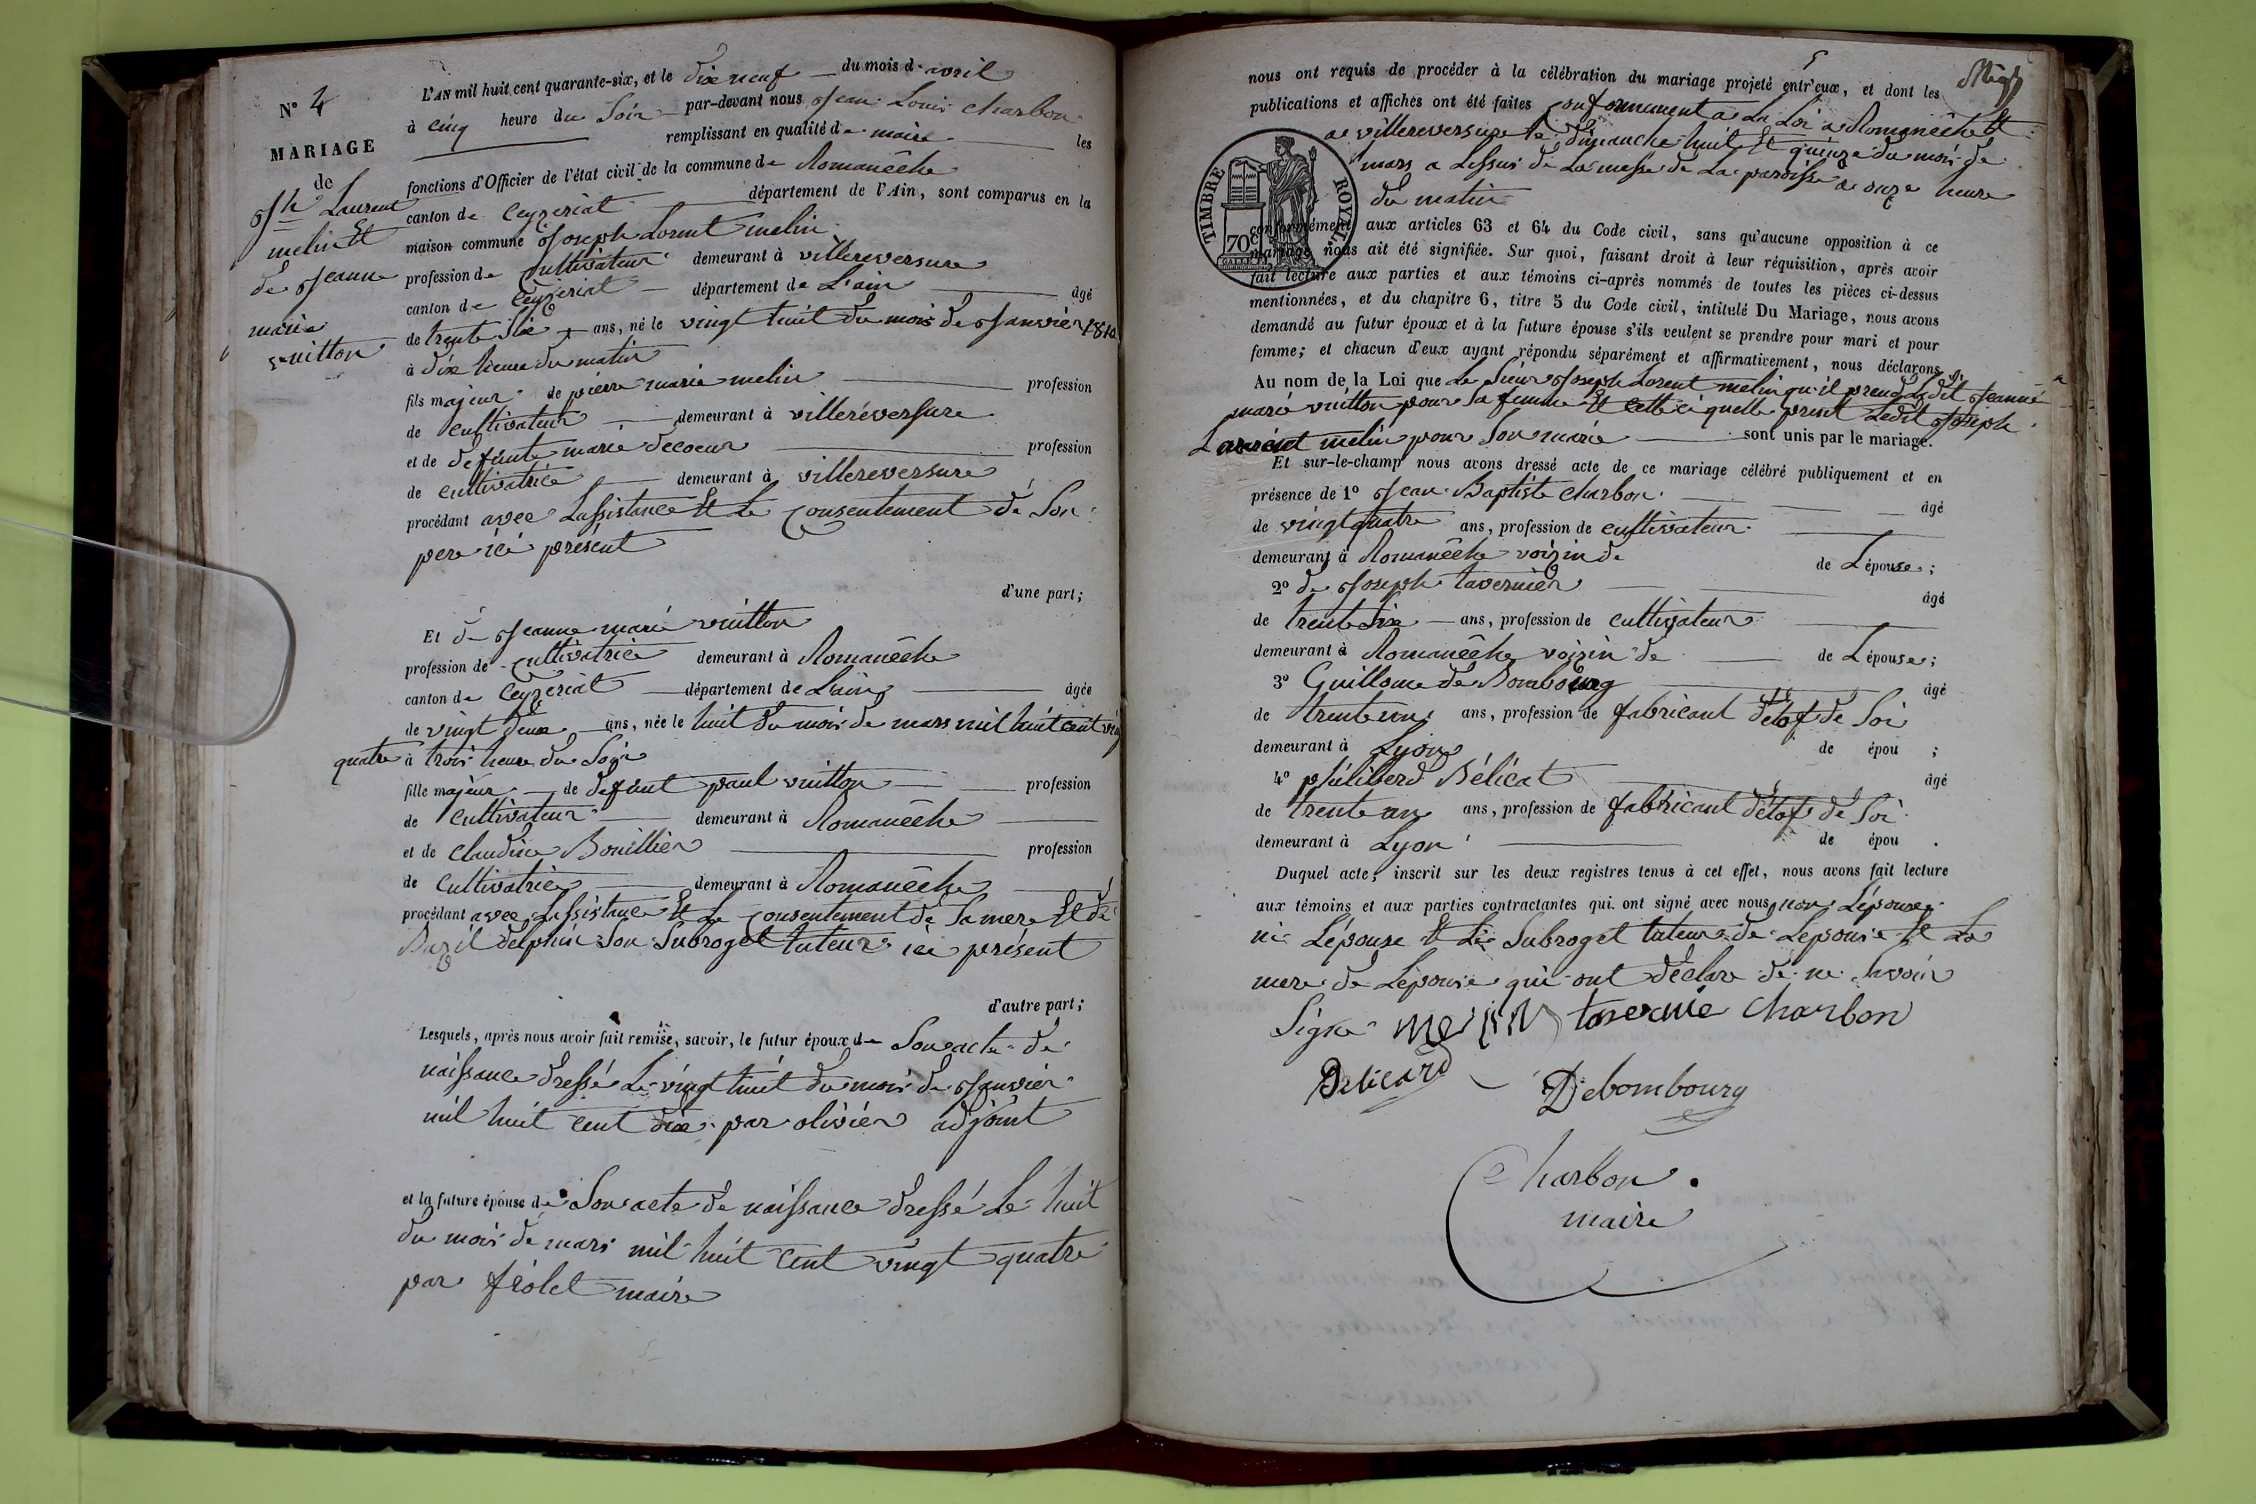 N° 4
MARIAGE
de
Jh Laurent
melin Et
de Jeanne
marie
vuitton
L'AN mil huit cent quarante-six, et le dix neuf du mois d avril
à cinq heure du Soir par-devant nous Jean Louis Charbon
remplissant en qualité de maire les
fonctions d'Officier de l'état civil de la commune de Romanêche
canton de Ceyzeriat département de l'Ain, sont comparus en la
maison commune Joseph Lorent melin
profession de Cultivateur demeurant à villereversure
canton de Ceyzeriat département de L'ain âgé
de trente Six ans, né le vingt huit du mois de Janvier 1810
à dix heure du matin
fils majeur de pierre marie melin profession
de Cultivateur demeurant à villeréversure
et de défunte marie decoeur profession
de cultivatrice demeurant à villereversure
procédant avec Lassistance Et Le Consentement de Son
pere ici présent
d'une part;
Et de Jeanne marie vuitton
profession de Cultivatrice demeurant à Romanêche
canton de Ceyzeriat département de L'ain âgée
de vingt deux ans, née le huit du mois de mars mil huit cent ving
quatre à trois heure du Soir
fille majeur de defunt paul vuitton profession
de Cultivateur demeurant à Romanêche
et de Claudine Bouillier profession
de Cultivatrice demeurant à Romanêche
procédant avec Lassistance Et Le Consentement de Sa mere Et de
Bazil delphin Son Subroget tuteur ici présent
d'autre part;
Lesquels, après nous avoir fait remise, savoir, le futur époux de Son acte de
naissance dressé Le vingt huit du mois de Janvier
mil huit cent dix par olivier adjoint
et la future épouse de Son acte de naissance dressé Le huit
du mois de mars mil huit cent vingt quatre
par friolet maire
5
nous ont requis de procéder à la célébration du mariage projeté entr'eux, et dont les
publications et affiches ont été faites Conformement a La Loi a Romanêche Et
a villereversure le dimanche huit Et quinze du mois de
mars a Lissus de La messe de La paroisse a onze heure
du matin
TIMBRE ROYAL
70c
conformément aux articles 63 et 64 du Code civil, sans qu'aucune opposition à ce
mariage nous ait été signifiée. Sur quoi, faisant droit à leur réquisition, après avoir
fait lecture aux parties et aux témoins ci-après nommés de toutes les pièces ci-dessus
mentionnées, et du chapitre 6, titre 5 du Code civil, intitulé Du Mariage, nous avons
demandé au futur époux et à la future épouse s'ils veulent se prendre pour mari et pour
femme; et chacun d'eux ayant répondu séparément et affirmativement, nous déclarons
Au nom de la Loi que Le Sieur Joseph Lorent melin qu'il prend Ledit Jeanne
marie vuitton pour Sa femme Et Cette ci quelle prent Ledit Joseph
Laurent melin pour Son marie sont unis par le mariage.
Et sur-le-champ nous avons dressé acte de ce mariage célébré publiquement et en
présence de 1° Jean Baptiste Charbon âgé
de vingt quatre ans, profession de cultivateur
demeurant à Romanêche voizin de de Lépouse;
2° de Joseph tavernier âgé
de trente Six ans, profession de cultivateur
demeurant à Romanêche voizin de de Lépouse;
3° Guillome de Bombourg âgé
de trente un ans, profession de fabricant détof de Soi
demeurant à Lyon de épou ;
4° philiberd Bélicat âgé
de trente un ans, profession de fabricant détof de Soi
demeurant à Lyon de épou .
Duquel acte, inscrit sur les deux registres tenus à cet effet, nous avons fait lecture
aux témoins et aux parties contractantes qui ont signé avec nous non Lépouse
ni Lépouse Et Le Subroget tuteur de Lepouse Et La
mere de Lépouse qui ont déclare de ne Savoir
Signe melin tavernie charbon
Belicard Debombourg
Charbon
maire